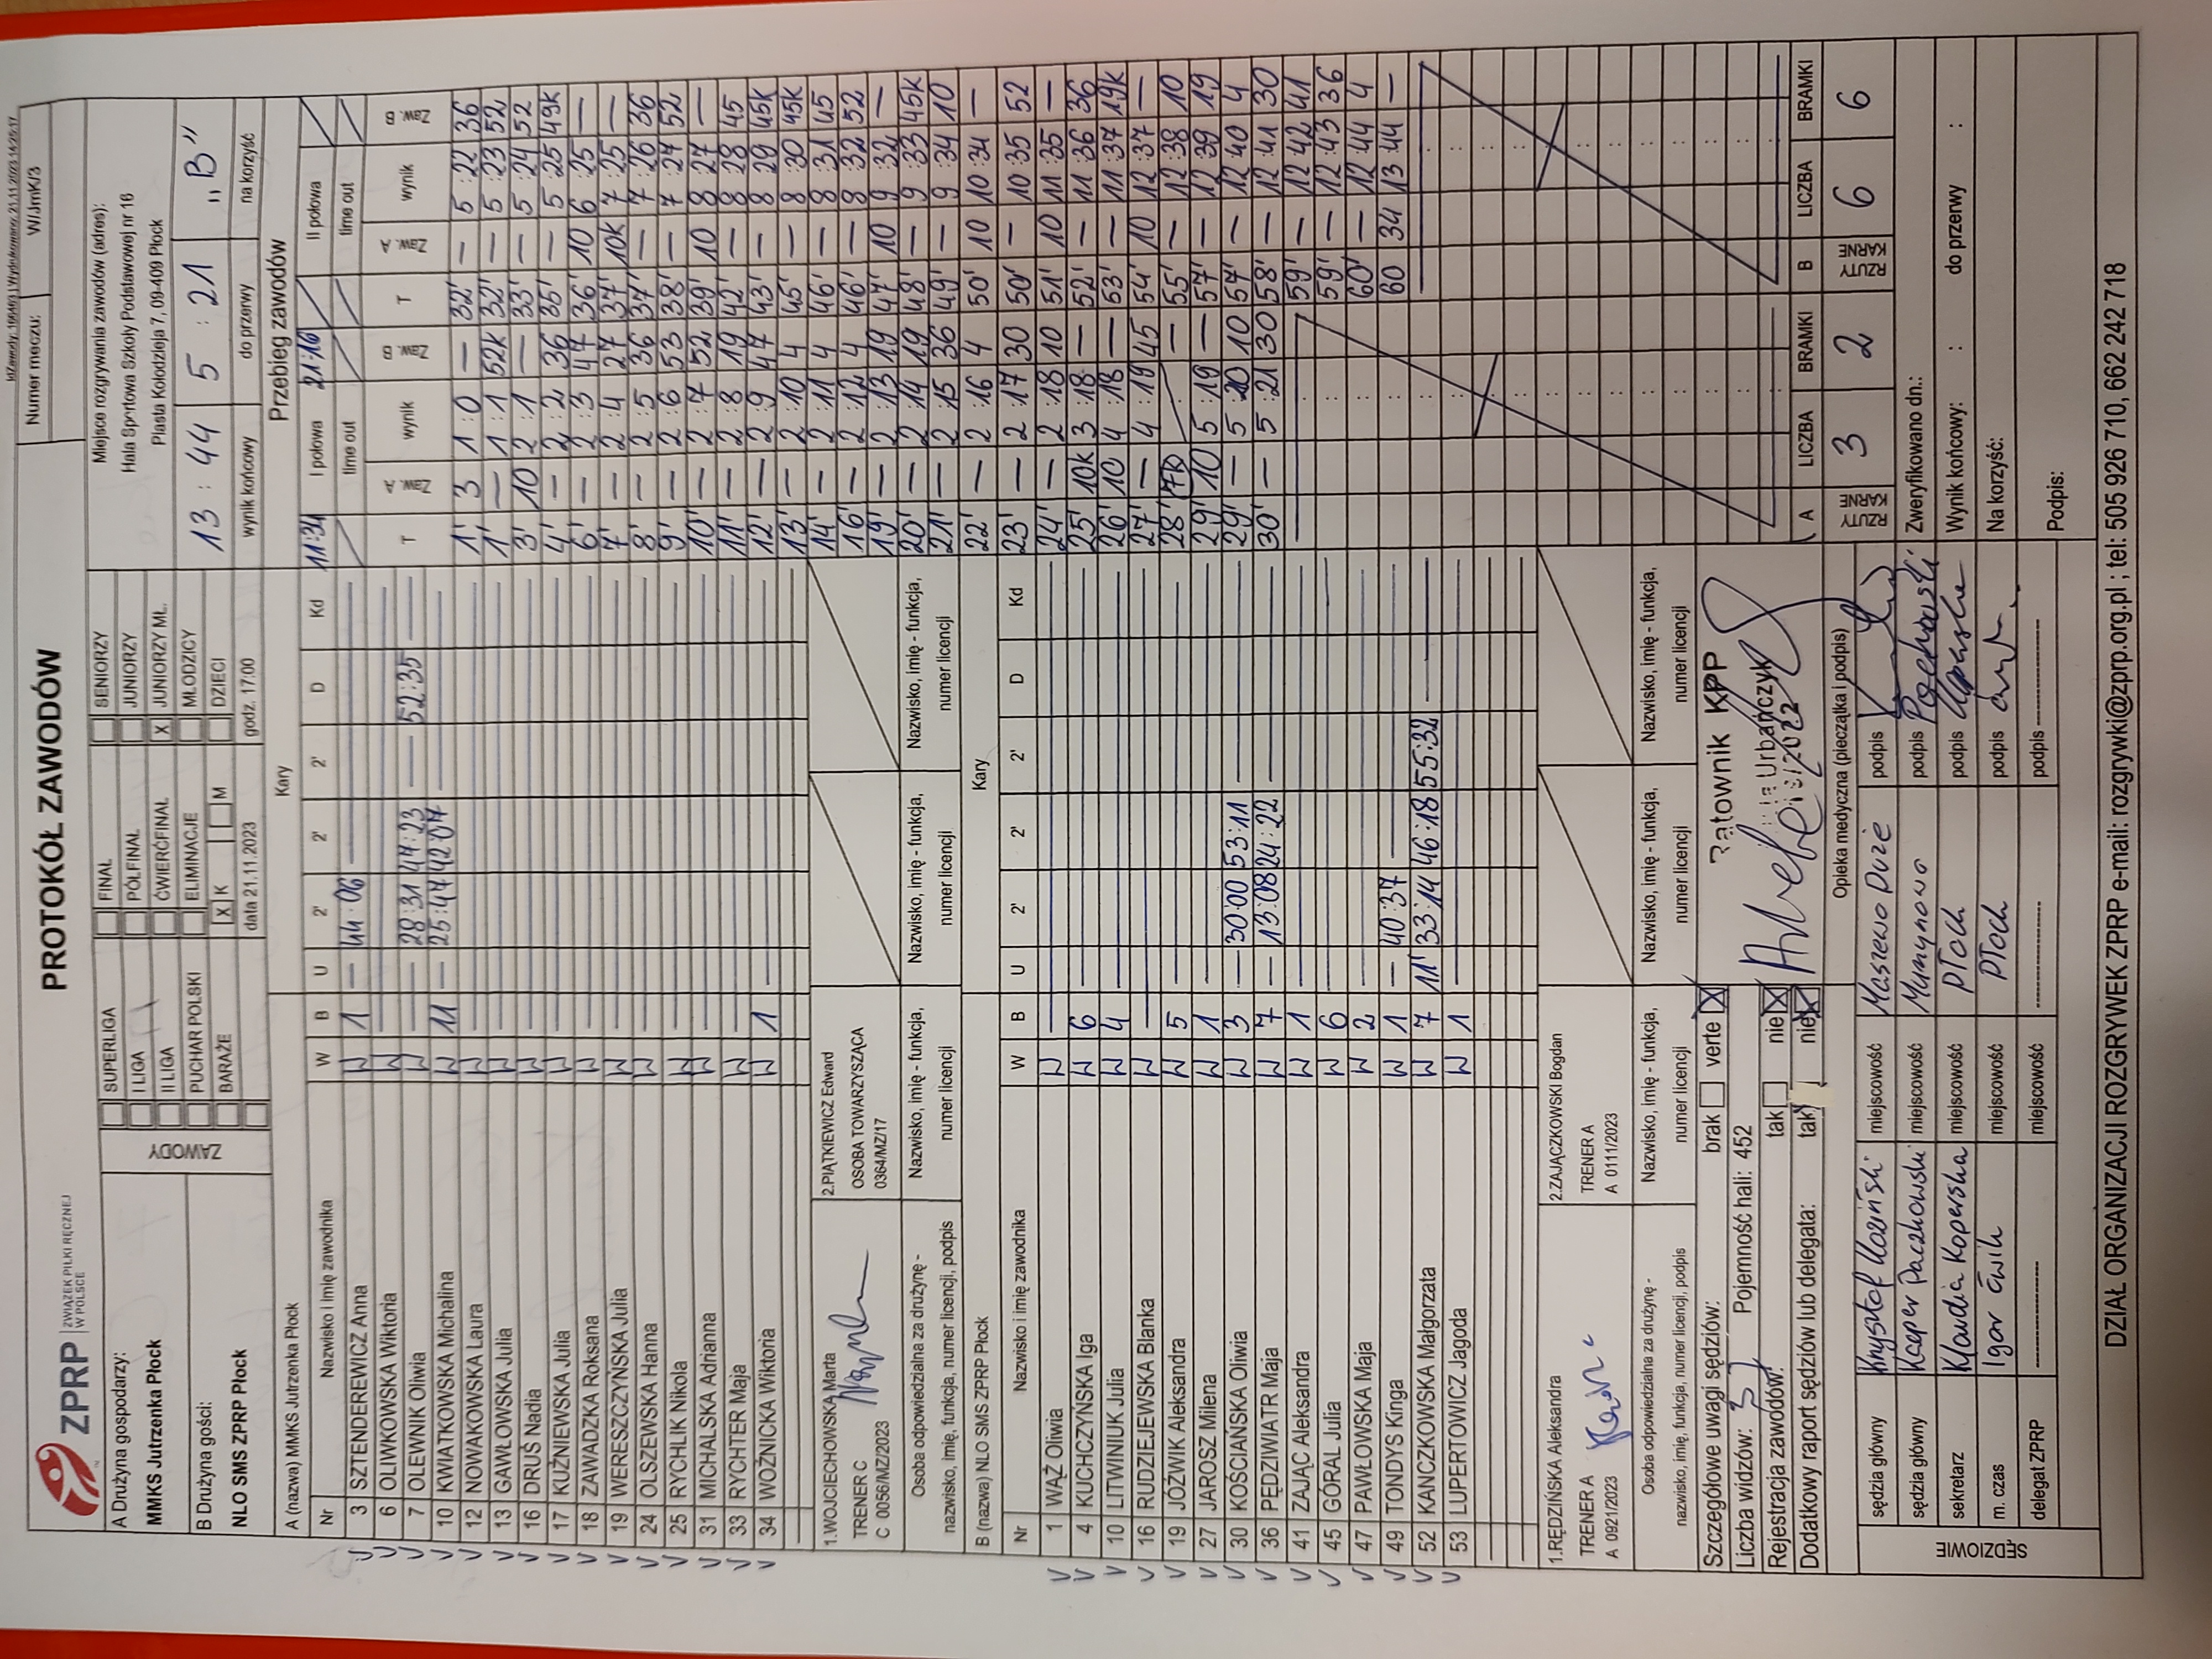 ZPRP ZWIĄZEK PIŁKI RĘCZNEJ W POLSCE
PROTOKÓŁ ZAWODÓW
Numer meczu: W/JmK/3
A Drużyna gospodarzy:
MMKS Jutrzenka Płock
B Drużyna gości:
NLO SMS ZPRP Płock
ZAWODY
SUPERLIGA
I LIGA
II LIGA
PUCHAR POLSKI
BARAŻE
FINAŁ
PÓŁFINAŁ
ĆWIERĆFINAŁ
ELIMINACJE
X K M
data 21.11.2023
SENIORZY
JUNIORZY
X JUNIORZY MŁ.
MŁODZICY
DZIECI
godz. 17:00
Miejsce rozgrywania zawodów (adres):
Hala Sportowa Szkoły Podstawowej nr 16
Piasta Kołodzieja 7, 09-409 Płock
13 : 44 5 : 21 „B”
wynik końcowy do przerwy na korzyść
A (nazwa) MMKS Jutrzenka Płock Kary
Nr Nazwisko i imię zawodnika W B U 2' 2' 2' D Kd
3 SZTENDEREWICZ Anna W 1 — 44:06
6 OLIWKOWSKA Wiktoria W
7 OLEWNIK Oliwia W — 28:31 47:23 — 52:35
10 KWIATKOWSKA Michalina W 11 — 25:47 42:07
12 NOWAKOWSKA Laura W
13 GAWŁOWSKA Julia W
16 DRUŚ Nadia W
17 KUŹNIEWSKA Julia W
18 ZAWADZKA Roksana W
19 WERESZCZYŃSKA Julia W
24 OLSZEWSKA Hanna W
25 RYCHLIK Nikola W
31 MICHALSKA Adrianna W
33 RYCHTER Maja W
34 WOŹNICKA Wiktoria W 1
1.WOJCIECHOWSKA Marta
TRENER C
C 0056/MZ/2023
2.PIĄTKIEWICZ Edward
OSOBA TOWARZYSZĄCA
0364/MZ/17
Osoba odpowiedzialna za drużynę -
nazwisko, imię, funkcja, numer licencji, podpis
Nazwisko, imię - funkcja,
numer licencji
Nazwisko, imię - funkcja,
numer licencji
Nazwisko, imię - funkcja,
numer licencji
B (nazwa) NLO SMS ZPRP Płock Kary
Nr Nazwisko i imię zawodnika W B U 2' 2' 2' D Kd
1 WĄŻ Oliwia W
4 KUCHCZYŃSKA Iga W 6
10 LITWINIUK Julia W 4
16 RUDZIEJEWSKA Blanka W
19 JÓŹWIK Aleksandra W 5
27 JAROSZ Milena W 1
30 KOŚCIAŃSKA Oliwia W 3 — 30:00 53:11
36 PĘDZIWIATR Maja W 7 — 13:08 24:22
41 ZAJĄC Aleksandra W 1
45 GÓRAL Julia W 6
47 PAWŁOWSKA Maja W 2
49 TONDYS Kinga W 1 — 40:37
52 KANCZKOWSKA Małgorzata W 7 11' 33:14 46:18 55:32
53 LUPERTOWICZ Jagoda W 1
1.RĘDZIŃSKA Aleksandra
TRENER A
A 0921/2023
2.ZAJĄCZKOWSKI Bogdan
TRENER A
A 0111/2023
Osoba odpowiedzialna za drużynę -
nazwisko, imię, funkcja, numer licencji, podpis
Nazwisko, imię - funkcja,
numer licencji
Nazwisko, imię - funkcja,
numer licencji
Nazwisko, imię - funkcja,
numer licencji
Przebieg zawodów
11:31 I połowa 21:16 II połowa
time out time out
T Zaw. A wynik Zaw. B T Zaw. A wynik Zaw. B
1' 3 1 : 0 — 32' — 5 : 22 36
1' — 1 : 1 52K 32' — 5 : 23 52
3' 10 2 : 1 — 33' — 5 : 24 52
4' — 2 : 2 36 35' — 5 : 25 49K
6' — 2 : 3 47 36' 10 6 : 25 —
7' — 2 : 4 27 37' 10K 7 : 25 —
8' — 2 : 5 36 37' — 7 : 26 36
9' — 2 : 6 53 38' — 7 : 27 52
10' — 2 : 7 52 39' 10 8 : 27 —
11' — 2 : 8 19 42' — 8 : 28 45
12' — 2 : 9 47 43' — 8 : 29 45K
13' — 2 : 10 4 45' — 8 : 30 45K
14' — 2 : 11 4 46' — 8 : 31 45
16' — 2 : 12 4 46' — 8 : 32 52
19' — 2 : 13 19 47' 10 9 : 32 —
20' — 2 : 14 19 48' — 9 : 33 45K
21' — 2 : 15 36 49' — 9 : 34 10
22' — 2 : 16 4 50' 10 10 : 34 —
23' — 2 : 17 30 50' — 10 : 35 52
24' — 2 : 18 10 51' 10 11 : 35 —
25' 10K 3 : 18 — 52' — 11 : 36 36
26' 10 4 : 18 — 53' — 11 : 37 19K
27' — 4 : 19 45 54' 10 12 : 37 —
28' 7K — 55' — 12 : 38 10
29' 10 5 : 19 — 57' — 12 : 39 19
29' — 5 : 20 10 57' — 12 : 40 4
30' — 5 : 21 30 58' — 12 : 41 30
59' — 12 : 42 41
59' — 12 : 43 36
60' — 12 : 44 4
60 34 13 : 44 —
RZUTY KARNE A LICZBA 3 BRAMKI 2
RZUTY KARNE B LICZBA 6 BRAMKI 6
Szczegółowe uwagi sędziów: brak verte X
Liczba widzów: Pojemność hali: 452
Rejestracja zawodów: tak nie X
Dodatkowy raport sędziów lub delegata: tak nie X
Ratownik KPP
Urbańczyk
Opieka medyczna (pieczątka i podpis)
Zweryfikowano dn.:
Wynik końcowy: : do przerwy :
Na korzyść:
Podpis:
SĘDZIOWIE
sędzia główny Krzysztof miejscowość Maszewo Duże podpis
sędzia główny Kacper Paczkowski miejscowość podpis Paczkowski
sekretarz Klaudia Koperska miejscowość Płock podpis
m. czas Igor Ćwik miejscowość Płock podpis
delegat ZPRP miejscowość podpis
DZIAŁ ORGANIZACJI ROZGRYWEK ZPRP e-mail: rozgrywki@zprp.org.pl ; tel: 505 926 710, 662 242 718